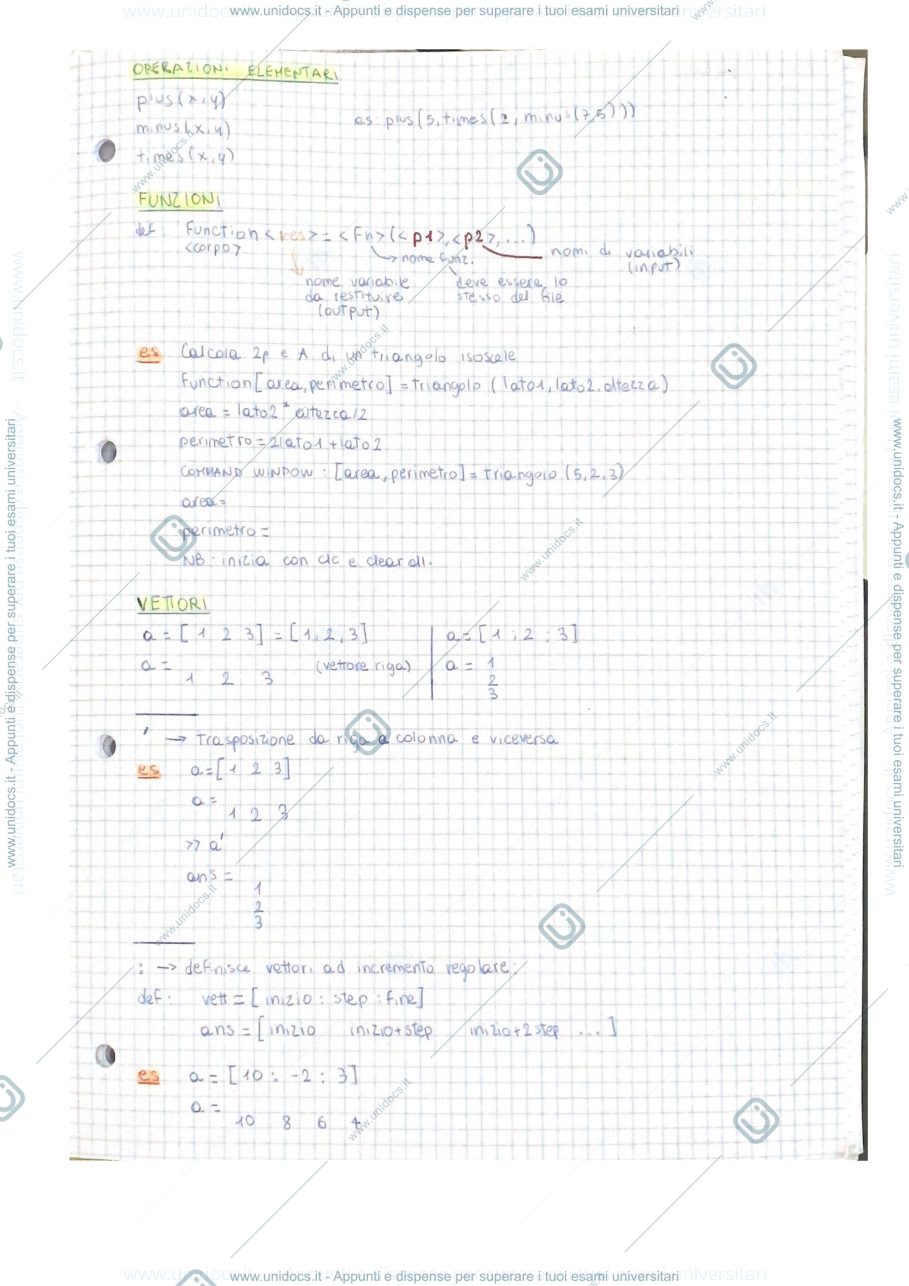 www.unidocs.it - Appunti e dispense per superare i tuoi esami universitari
OPERAZIONI ELEMENTARI
plus(x,y)
minus(x,y)
times(x,y)
es plus(5,times(2,minus(7,5)))
FUNZIONI
def Function <res> = <Fn>(<p1>,<p2>,...)
<corpo>
nome funz.
nomi di variabili
(input)
nome variabile
da restituire
(output)
deve essere lo
stesso del file
es Calcola 2p e A di un triangolo isoscele
Function [area, perimetro] = triangolo (lato1, lato2, altezza)
area = lato2 * altezza/2
perimetro = 2lato1 + lato2
COMMAND WINDOW : [area, perimetro] = triangolo (5,2,3)
area =
perimetro =
NB: inizia con clc e clear all.
VETTORI
a = [ 1 2 3] = [1,2,3]
a =
1 2 3 (vettore riga)
a = [1 ; 2 ; 3]
a = 1
2
3
' → Trasposizione da riga a colonna e viceversa
es a=[ 1 2 3]
a =
1 2 3
>> a'
ans =
1
2
3
: → definisce vettori ad incremento regolare:
def: vett = [ inizio : step : fine]
ans = [inizio inizio+step inizio+2step ... ]
es a = [10 : -2 : 3]
a =
10 8 6 4
www.unidocs.it - Appunti e dispense per superare i tuoi esami universitari
www.unidocs.it - Appunti e dispense per superare i tuoi esami universitari
www.unidocs.it - Appunti e dispense per superare i tuoi esami universitari
www.unidocs.it
www.unidocs.it
www.unidocs.it
www.unidocs.it
www.unidocs.it
www.unidocs.it